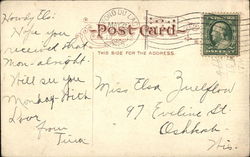 Howdy El:
Hope you
received that
Mon- alright.
Will see you
Monday- With
Love
from
Tina
FOND DU LAC
Post Card
THIS SIDE FOR THE ADDRESS.
Miss Elsa Zuelflow
97 Eveline St.
Oshkosh
Wis.